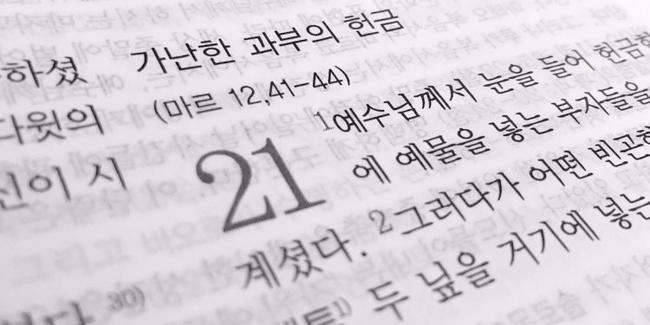 하셨
다윗의
신이 시
30)
가난한 과부의 헌금
(마르 12,41-44)
21
1예수님께서 눈을 들어 헌금
에 예물을 넣는 부자들을
계셨다. 2그러다가 어떤 빈곤한
1) 두 닢을 거기에 넣는